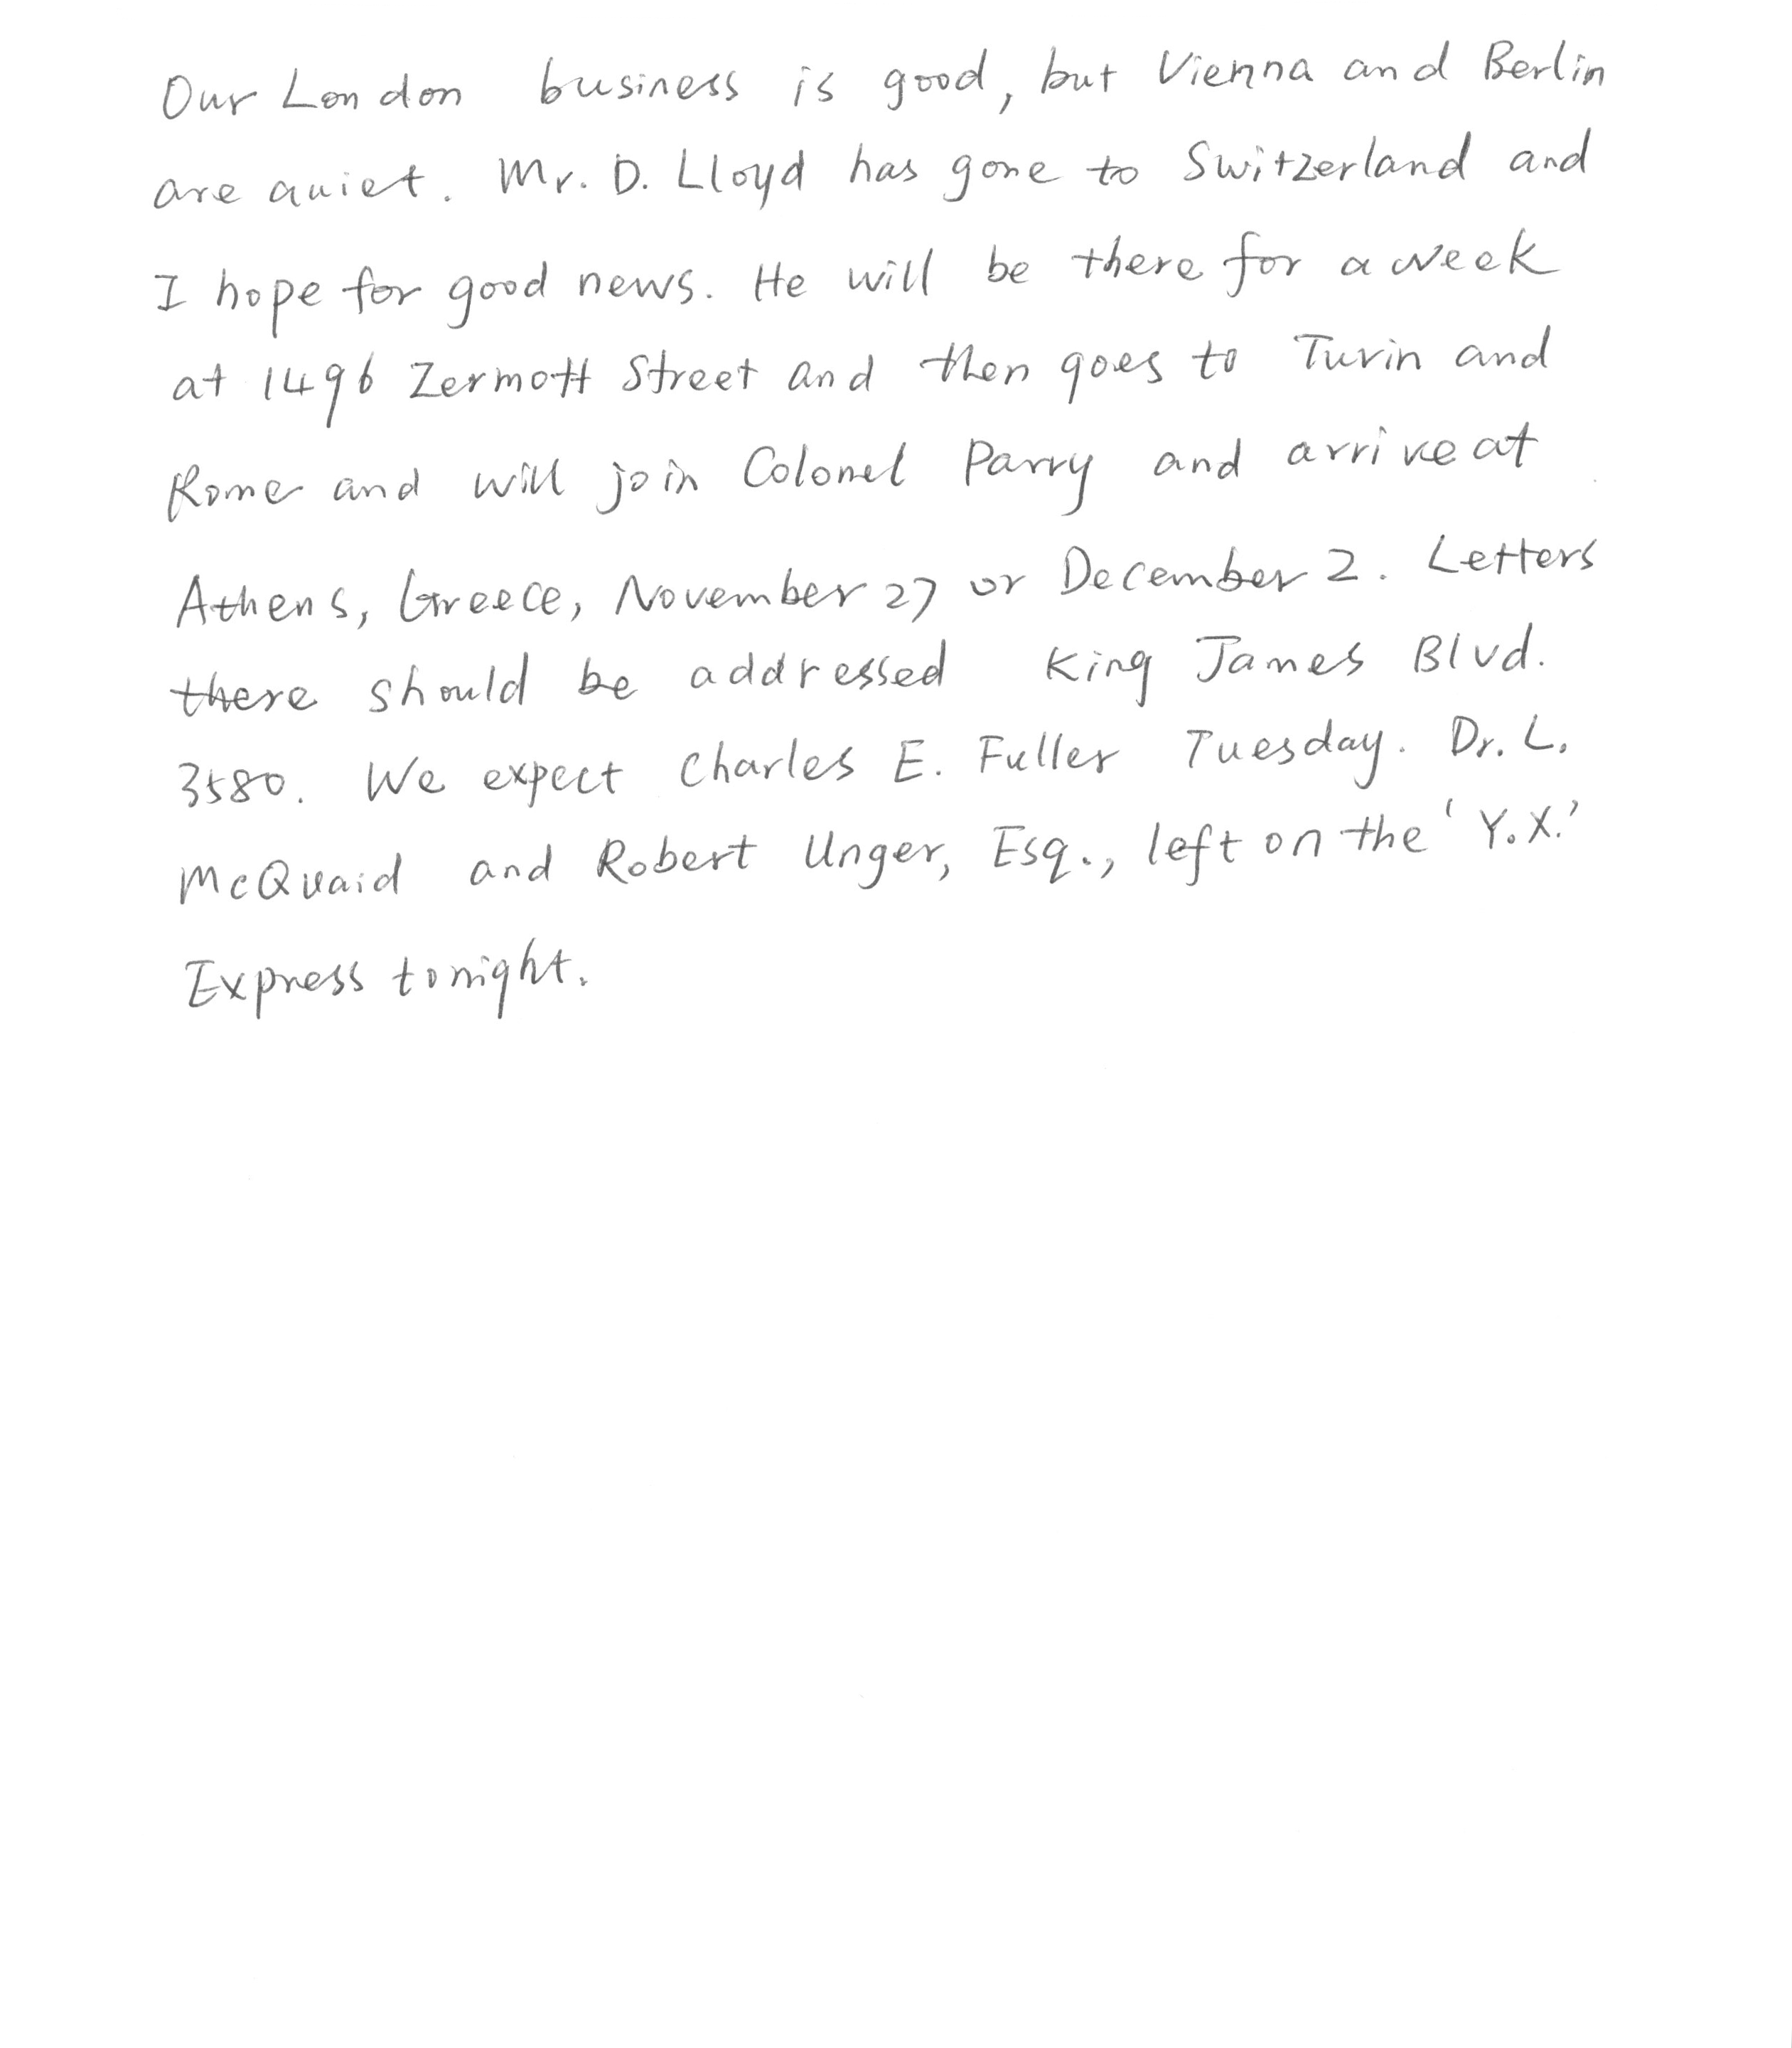 Our London business is good, but Vienna and Berlin
are quiet. Mr. D. Lloyd has gone to Switzerland and
I hope for good news. He will be there for a week
at 1496 Zermott Street and then goes to Turin and
Rome and will join Colonel Parry and arrive at
Athens, Greece, November 27 or December 2. Letters
there should be addressed King James Blvd.
3580. We expect Charles E. Fuller Tuesday. Dr. L.
McQuaid and Robert Unger, Esq., left on the 'Y.X.'
Express tonight.